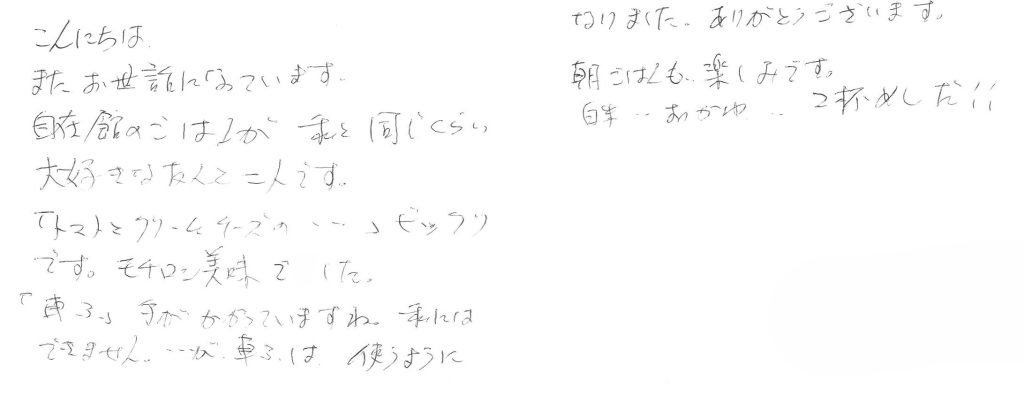 こんにちは
また お世話になっています。
自在館のごはんが 私と同じくらい
大好きな友人と二人です。
「トマトとクリームチーズの ‥‥」ビックリ
です。モチロン美味でした。
「車ふ」手がかかっていますね。私には
できません。‥が、車ふは 使うように
なりました。ありがとうございます。
朝ごはんも 楽しみです。
‥おかゆ‥ 2杯めしだ!!